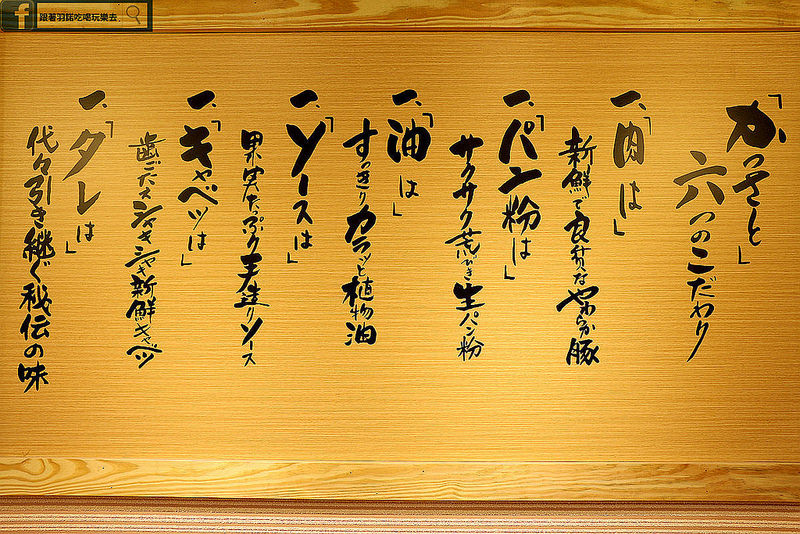 「かつさと」
六つのこだわり
一、「肉は」
新鮮で良質なやわらか豚
一、「パン粉は」
サクサク荒びき生パン粉
一、「油は」
すっきりカラッと植物油
一、「ソースは」
果実たっぷり手造りソース
一、「キャベツは」
歯ごたえシャキシャキ新鮮キャベツ
一、「タレは」
代々引き継ぐ秘伝の味
跟著羽諾吃喝玩樂去